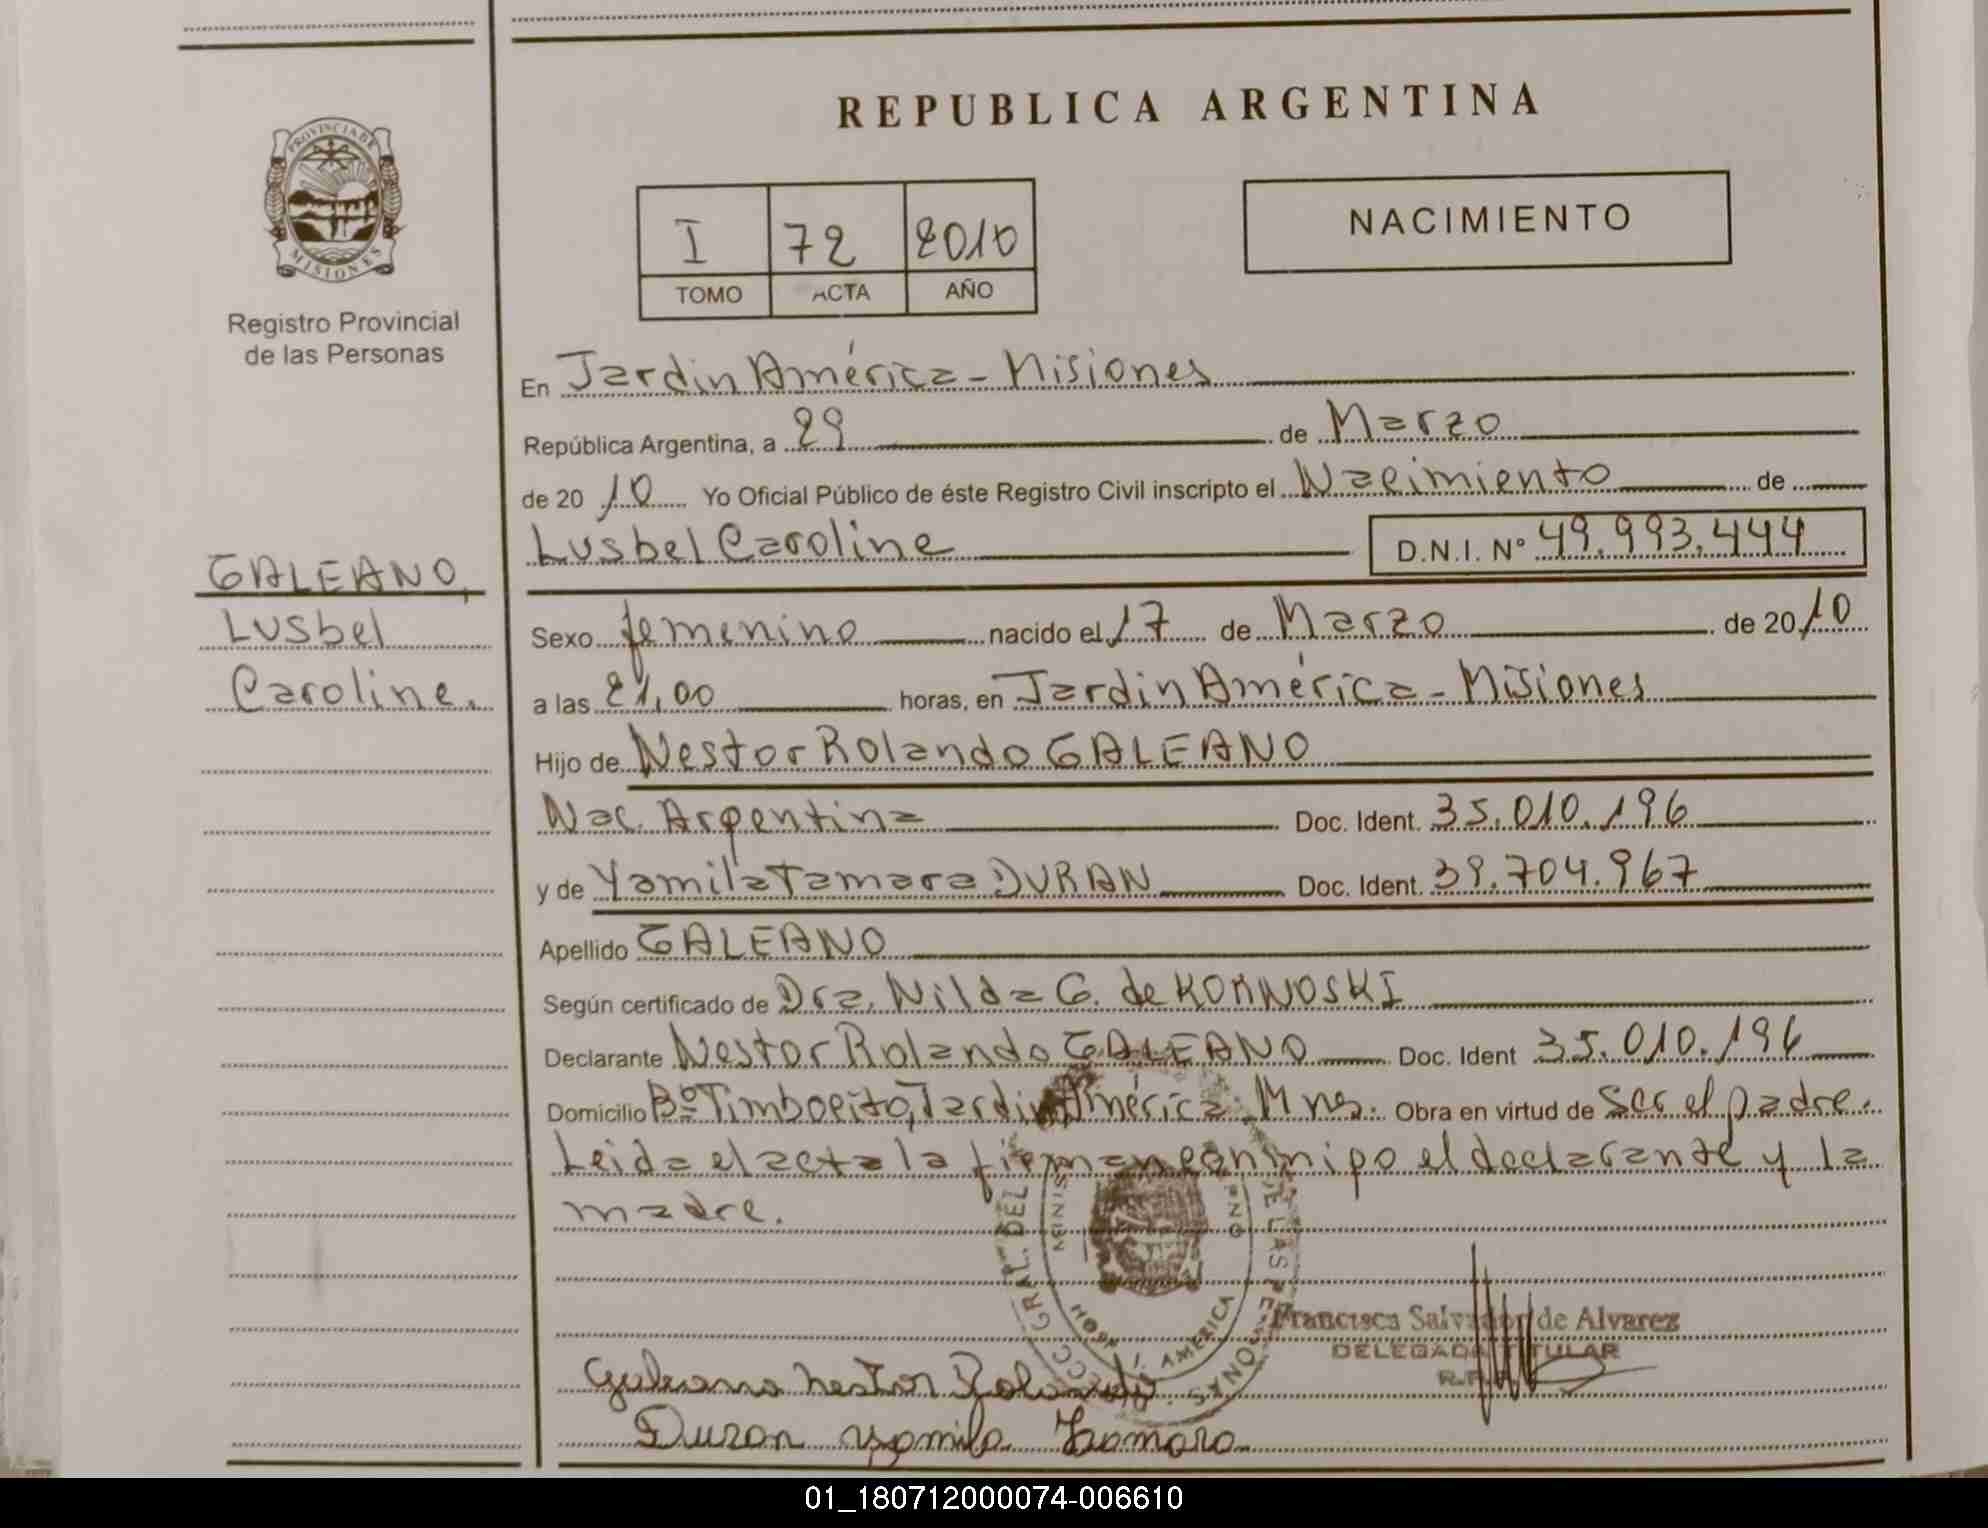 REPUBLICA ARGENTINA
PROVINCIA DE
MISIONES
Registro Provincial
de las Personas
I 72 2010
TOMO ACTA AÑO
NACIMIENTO
En Jardin América - Misiones
República Argentina, a 29 de Marzo
de 2010 Yo Oficial Público de éste Registro Civil inscripto el Nacimiento de
Lusbel Caroline D.N.I. Nº 49.993.444
GALEANO,
Lusbel
Caroline.
Sexo femenino nacido el 17 de Marzo de 2010
a las 21,00 horas, en Jardin América - Misiones
Hijo de Nestor Rolando GALEANO
Nac. Argentina Doc. Ident. 35.010.196
y de Yamila Tamara DURAN Doc. Ident. 39.704.967
Apellido GALEANO
Según certificado de Dra. Nilda G. de
Declarante Nestor Rolando GALEANO Doc. Ident 35.010.196
Domicilio Bº Timbocito, Jardin América Mnes. Obra en virtud de ser el padre.
Leida el acta la firman conmigo el declarante y la
madre.
GRAL. DEL
DE LAS PERSONAS
J. AMERICA
Francisca Salvador de Alvarez
DELEGADA TITULAR
Galeano nestor Rolando
Duran yamila tamara
01_180712000074-006610